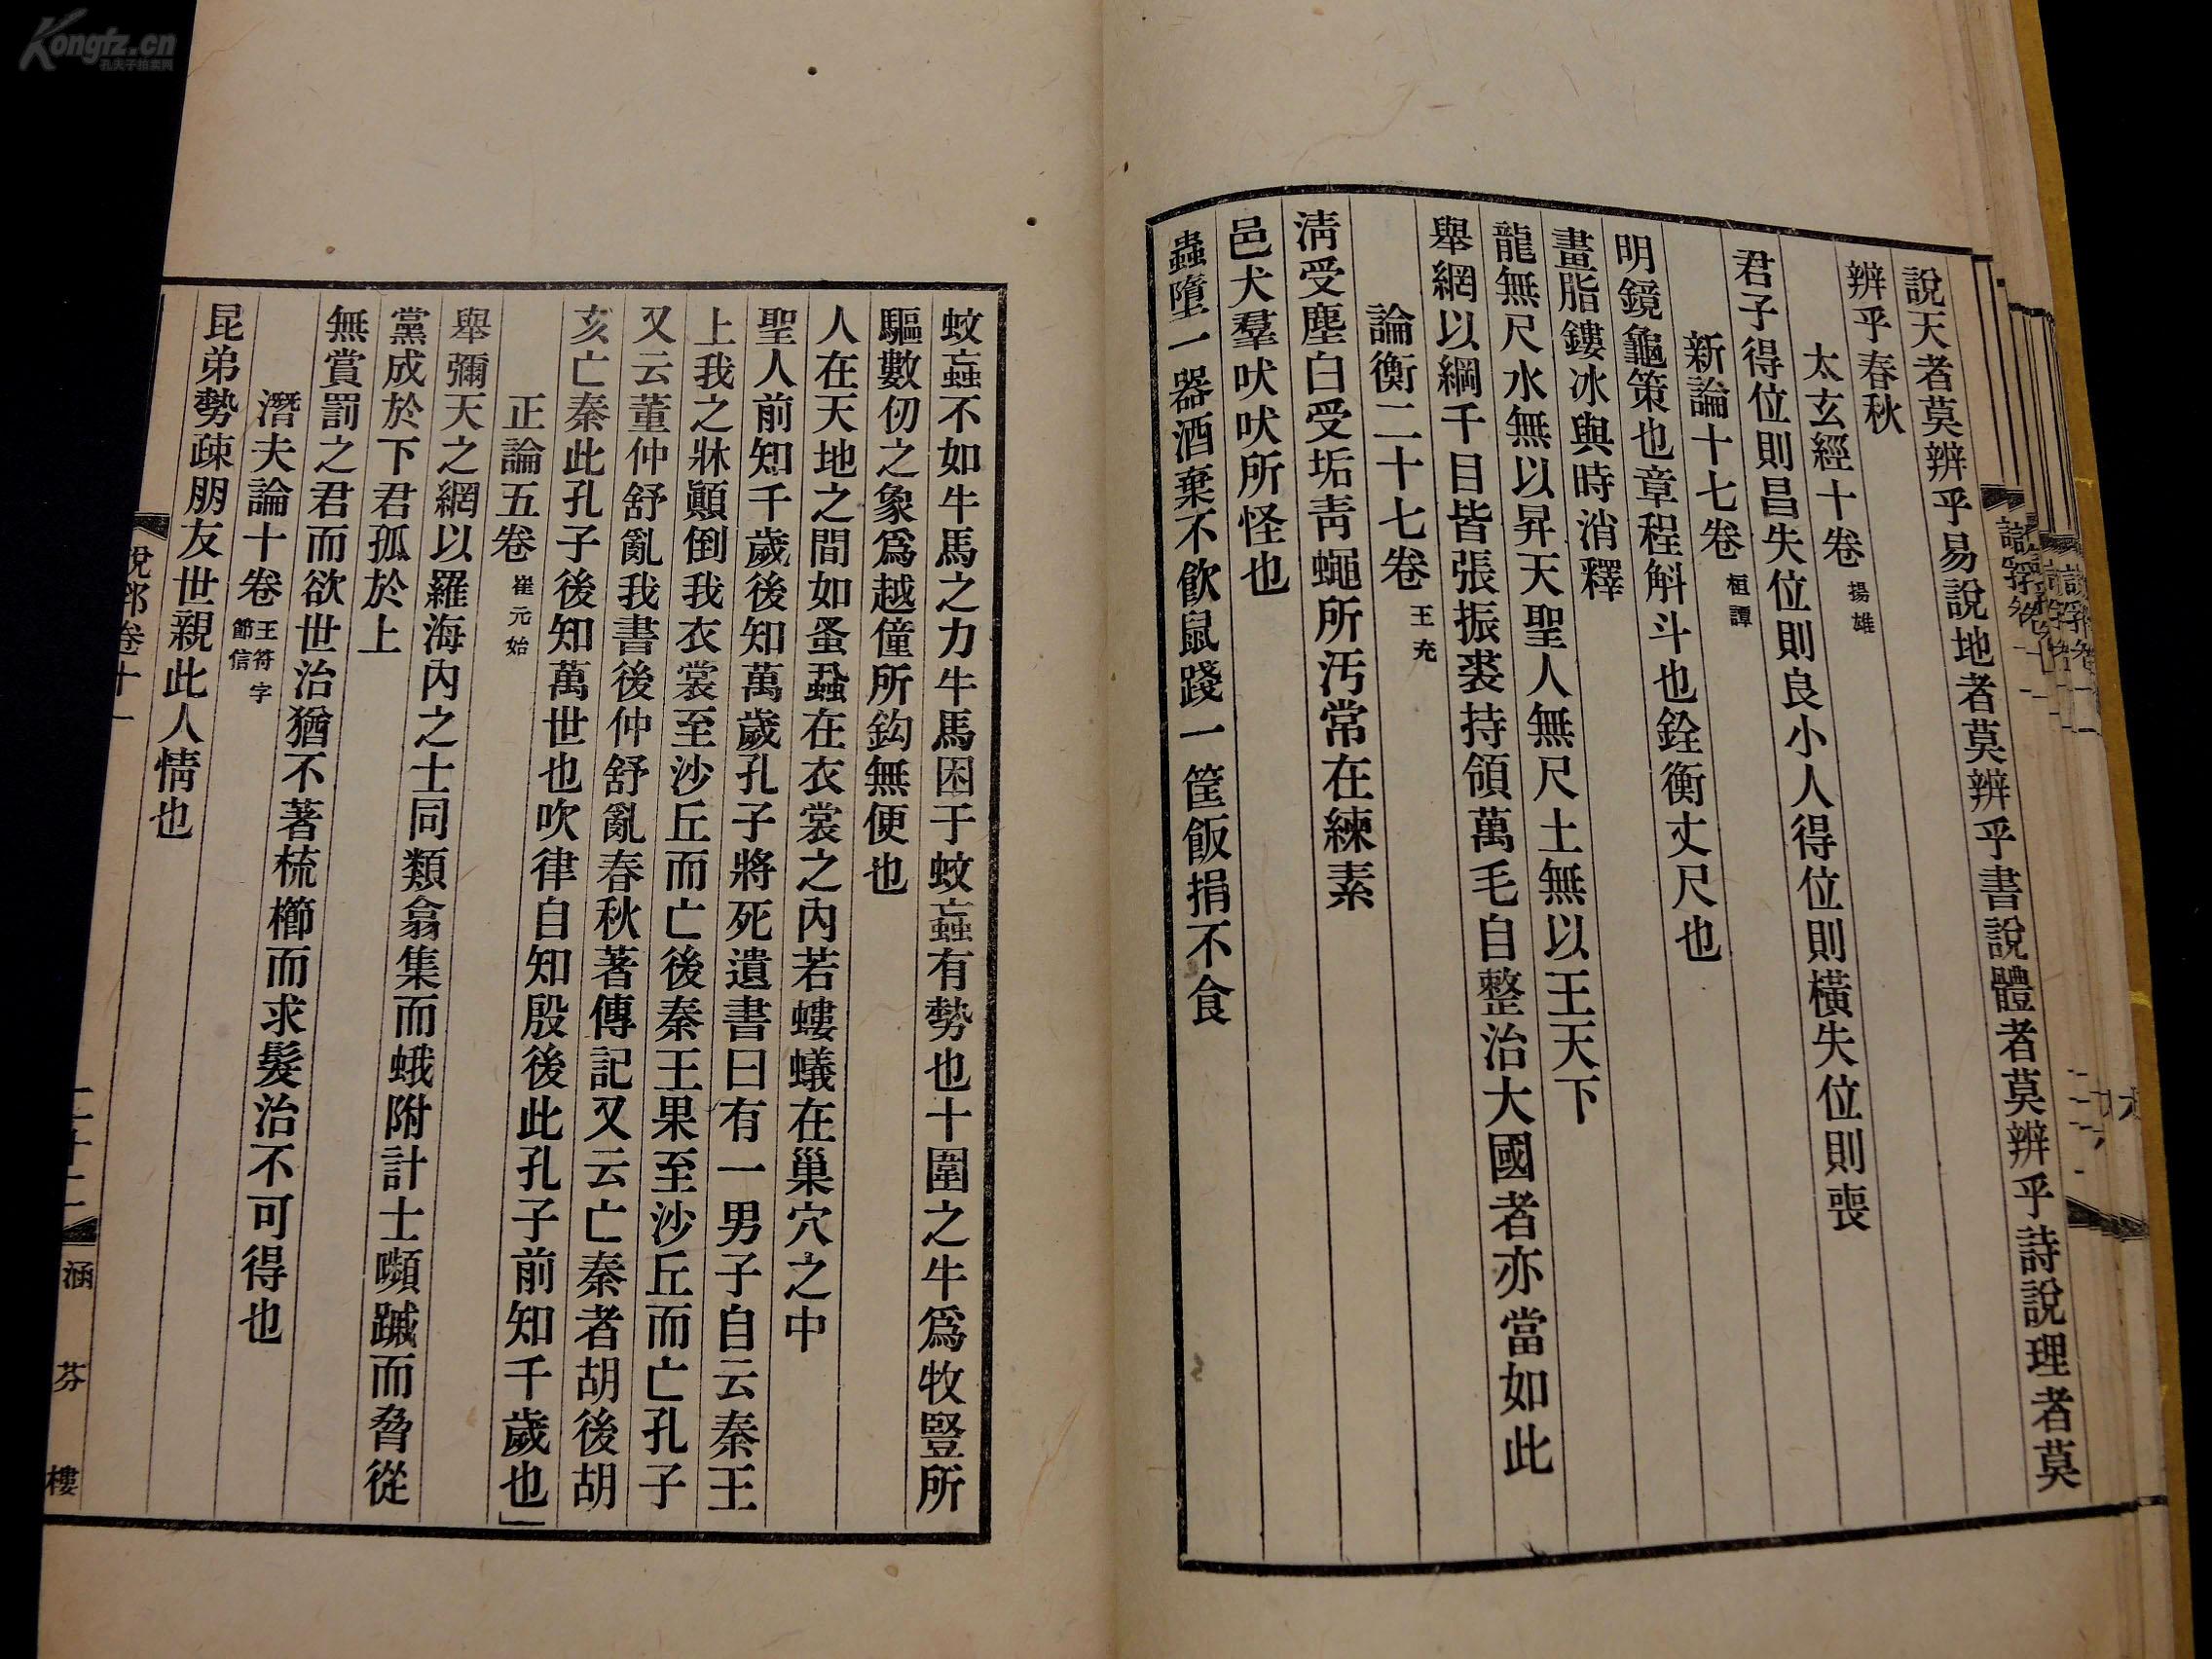 說天者莫辨乎易說地者莫辨乎書說體者莫辨乎詩說理者莫
辨乎春秋
太玄經十卷 揚雄
君子得位則昌失位則良小人得位則橫失位則喪
新論十七卷 桓譚
明鏡龜策也章程斛斗也銓衡丈尺也
畫脂鏤冰與時消釋
龍無尺水無以昇天聖人無尺土無以王天下
舉網以綱千目皆張振裘持領萬毛自整治大國者亦當如此
論衡二十七卷 王充
淸受塵白受垢靑蠅所汚常在練素
邑犬羣吠吠所怪也
蟲墮一器酒棄不飮鼠踐一筐飯捐不食
蚊蝱不如牛馬之力牛馬困于蚊蝱有勢也十圍之牛爲牧豎所
驅數仞之象爲越僮所鈎無便也
人在天地之間如蚤蝨在衣裳之內若螻蟻在巢穴之中
聖人前知千歲後知萬歲孔子將死遺書曰有一男子自云秦王
上我之牀顚倒我衣裳至沙丘而亡後秦王果至沙丘而亡孔子
又云董仲舒亂我書後仲舒亂春秋著傳記又云亡秦者胡後胡
亥亡秦此孔子後知萬世也吹律自知殷後此孔子前知千歲也」
正論五卷 崔元始
舉彌天之網以羅海內之士同類翕集而蛾附計士嚬蹙而脅從
黨成於下君孤於上
無賞罰之君而欲世治猶不著梳櫛而求髮治不可得也
潛夫論十卷 王符字節信
昆弟勢疎朋友世親此人情也
說郛卷十一
二十二
涵芬樓
Kongfz.cn
孔夫子拍卖网